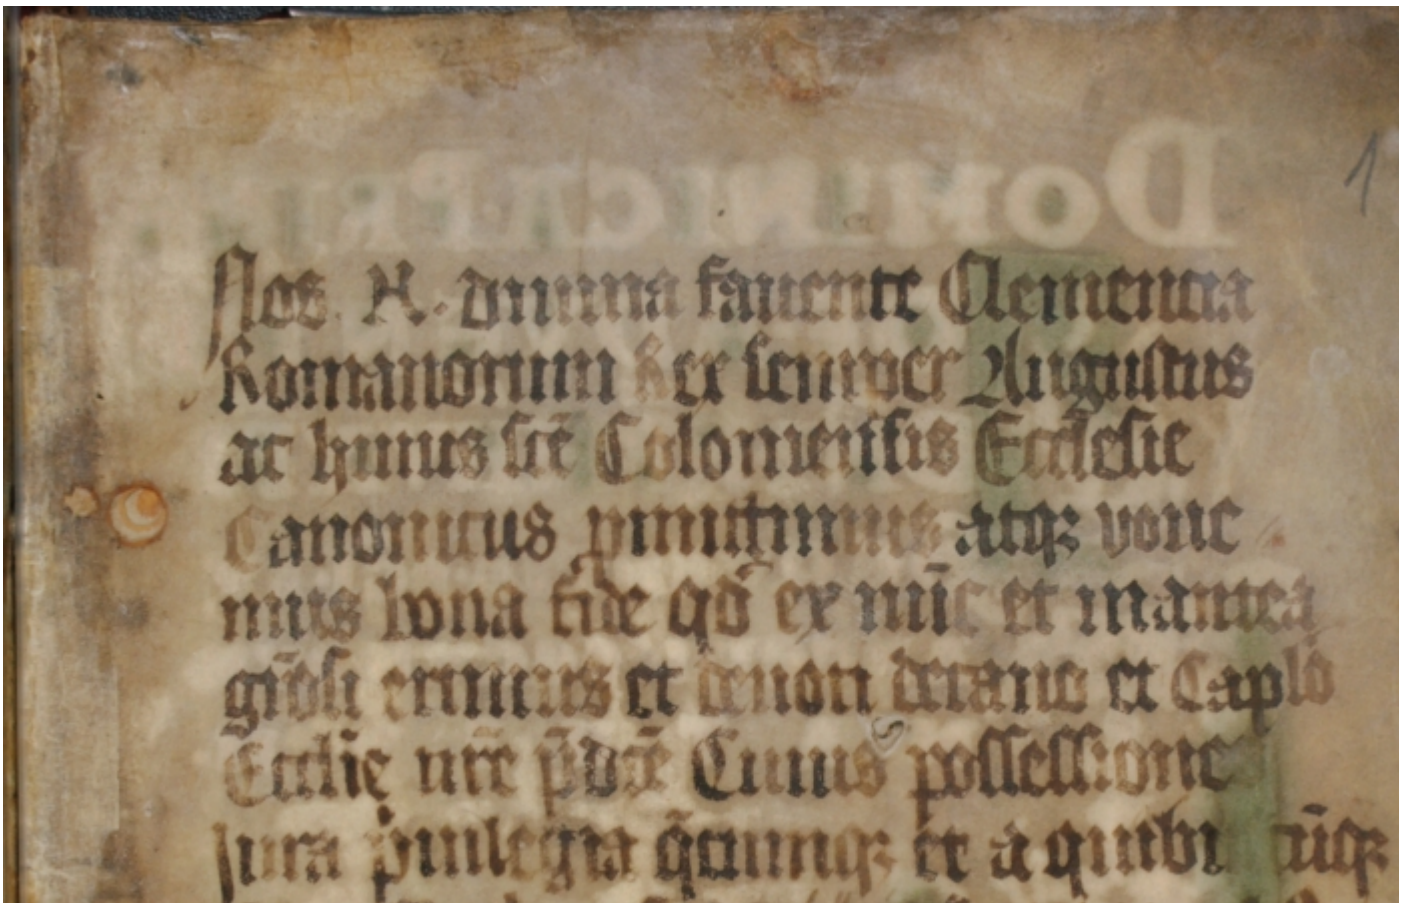 DOMINICA PRI
1
Nos. N. diuina fauente Clementia
Romanorum Rex semper Augustus
ac huius sctē Coloniensis Ecclesie
Canonicus ꝓmittimus atqꝫ voue
mus bona fide qđ ex nūc et inantea
erimus et Decano et Caplo
Ecclīe nrē p̄dctē Cuius possessiones
Jura p̄uilegia q̄cumqꝫ et a quibuscūqꝫ